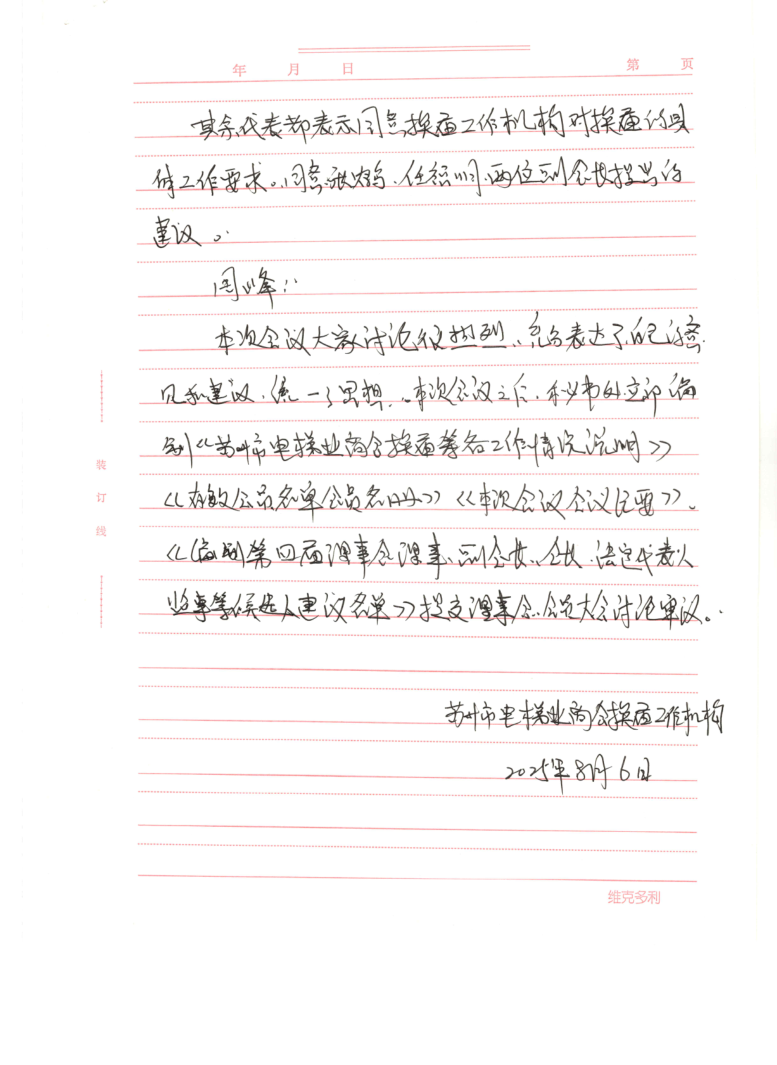 年 月 日 第 页
其余代表都表示同意换届工作机构对换届的具
体工作要求。同意 任 两位副会长提出的
建议。
周峰:
本次会议大家讨论很热烈、充分表达了自己的意
见和建议,统一了思想。本次会议之后,秘书处立即编
制《苏州市电梯业商会换届筹备工作情况说明》
《有效会员名单会员名册》《本次会议会议纪要》。
《编制第四届理事会理事、副会长、会长、法定代表人
监事等候选人建议名单》提交理事会、会员大会讨论审议。
苏州市电梯业商会换届工作机构
2025年8月6日
装
订
线
维克多利